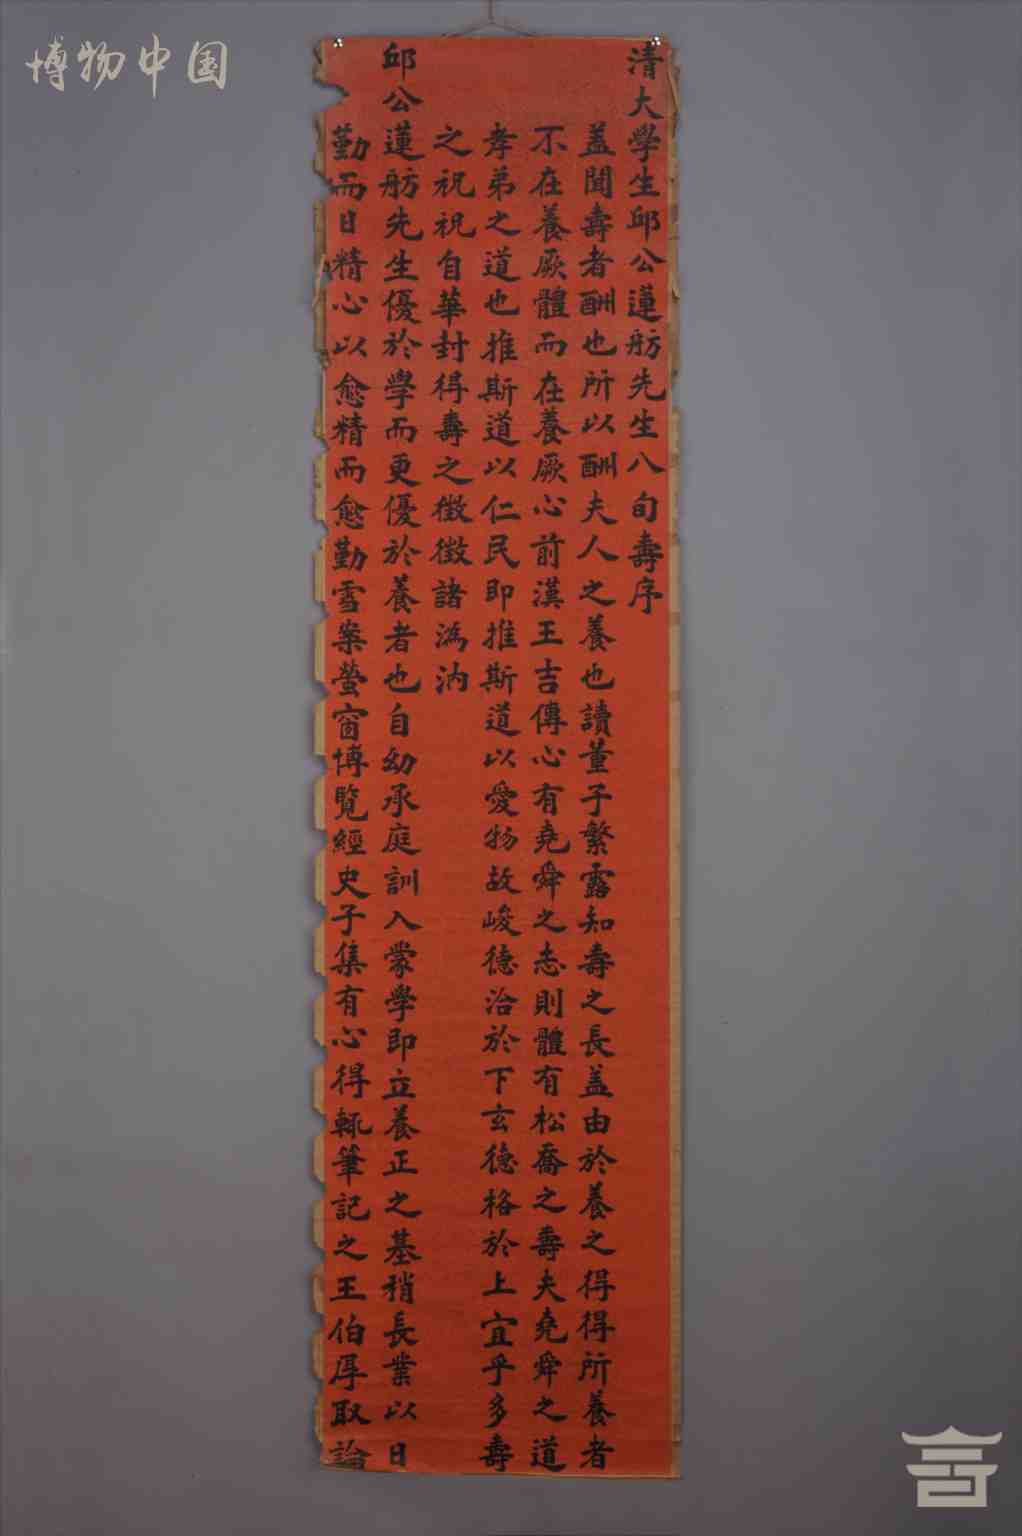 博物中国
清大學生邱公蓮舫先生八旬壽序
蓋聞壽者酬也所以酬夫人之養也讀董子繁露知壽之長蓋由於養之得得所養者
不在養厥體而在養厥心前漢王吉傳心有堯舜之志則體有松喬之壽夫堯舜之道
孝弟之道也推斯道以仁民即推斯道以愛物故峻德洽於下玄德格於上宜乎多壽
之祝祝自華封得壽之徵徵諸溈汭
邱公蓮舫先生優於學而更優於養者也自幼承庭訓入蒙學即立養正之基稍長業以日
勤而日精心以愈精而愈勤雪案螢窗博覽經史子集有心得輒筆記之王伯厚取論